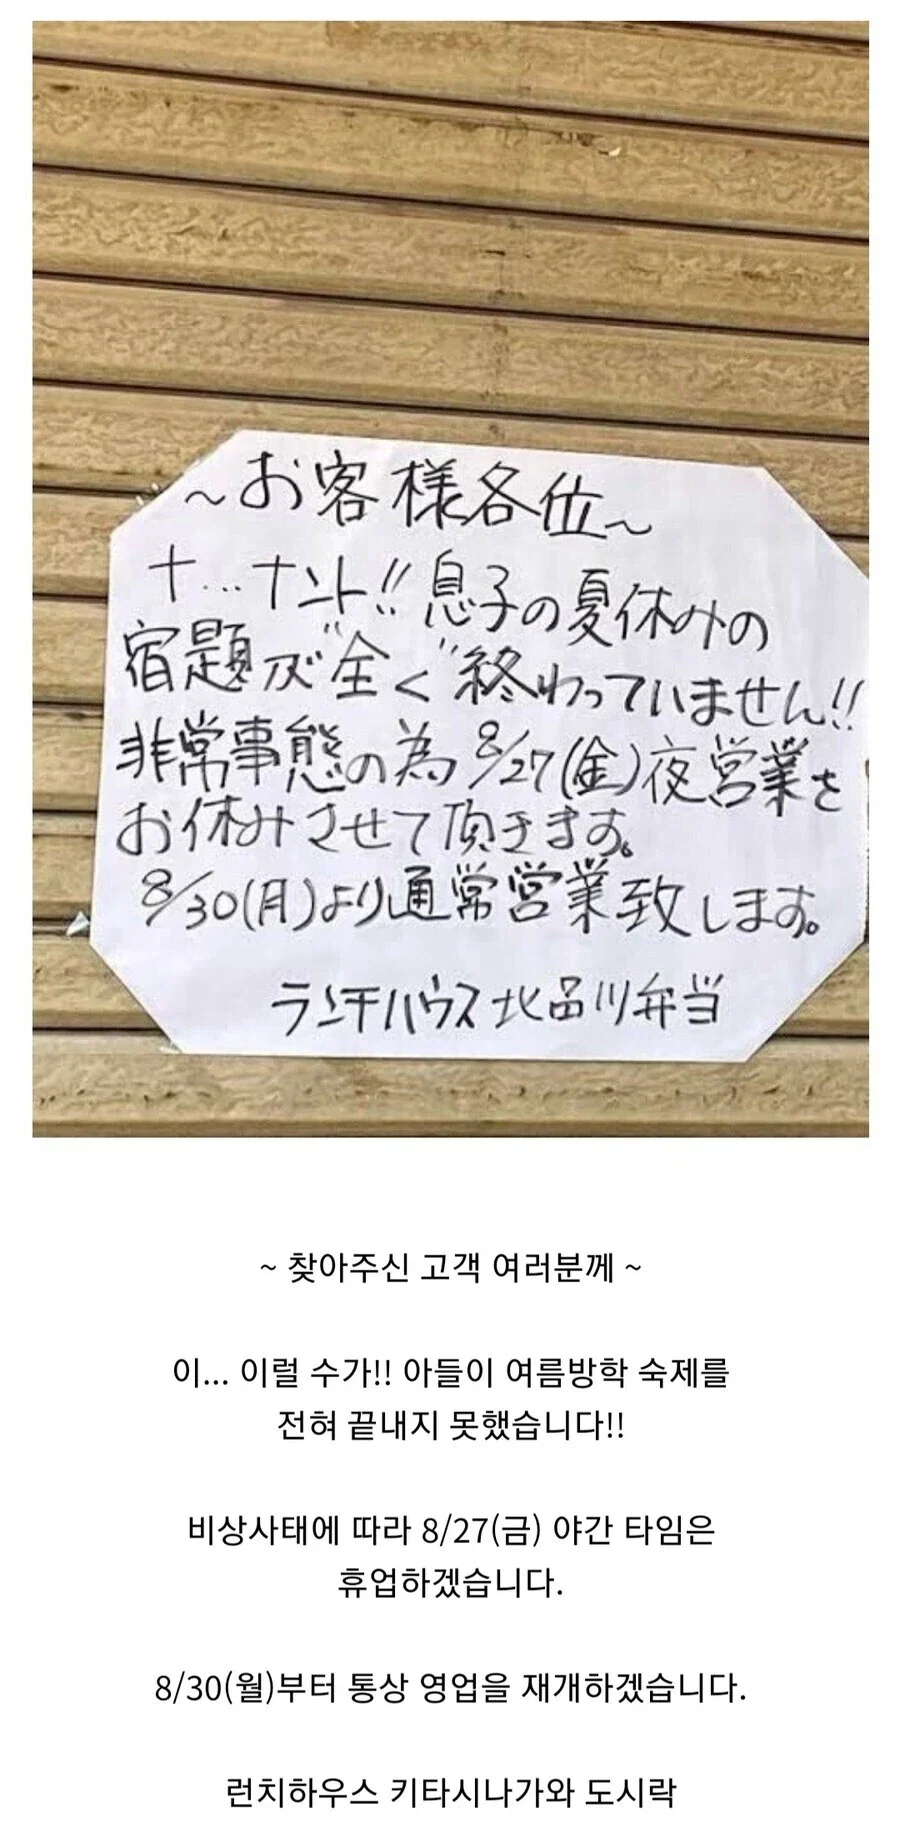 ~お客様各位~
ナ…ナント!! 息子の夏休みの
宿題が"全く"終わっていません!!
非常事態の為 8/27(金)夜営業を
お休みさせて頂きます。
8/30(月)より通常営業致します。
ランチハウス北品川弁当
~ 찾아주신 고객 여러분께 ~
이... 이럴 수가!! 아들이 여름방학 숙제를
전혀 끝내지 못했습니다!!
비상사태에 따라 8/27(금) 야간 타임은
휴업하겠습니다.
8/30(월)부터 통상 영업을 재개하겠습니다.
런치하우스 키타시나가와 도시락